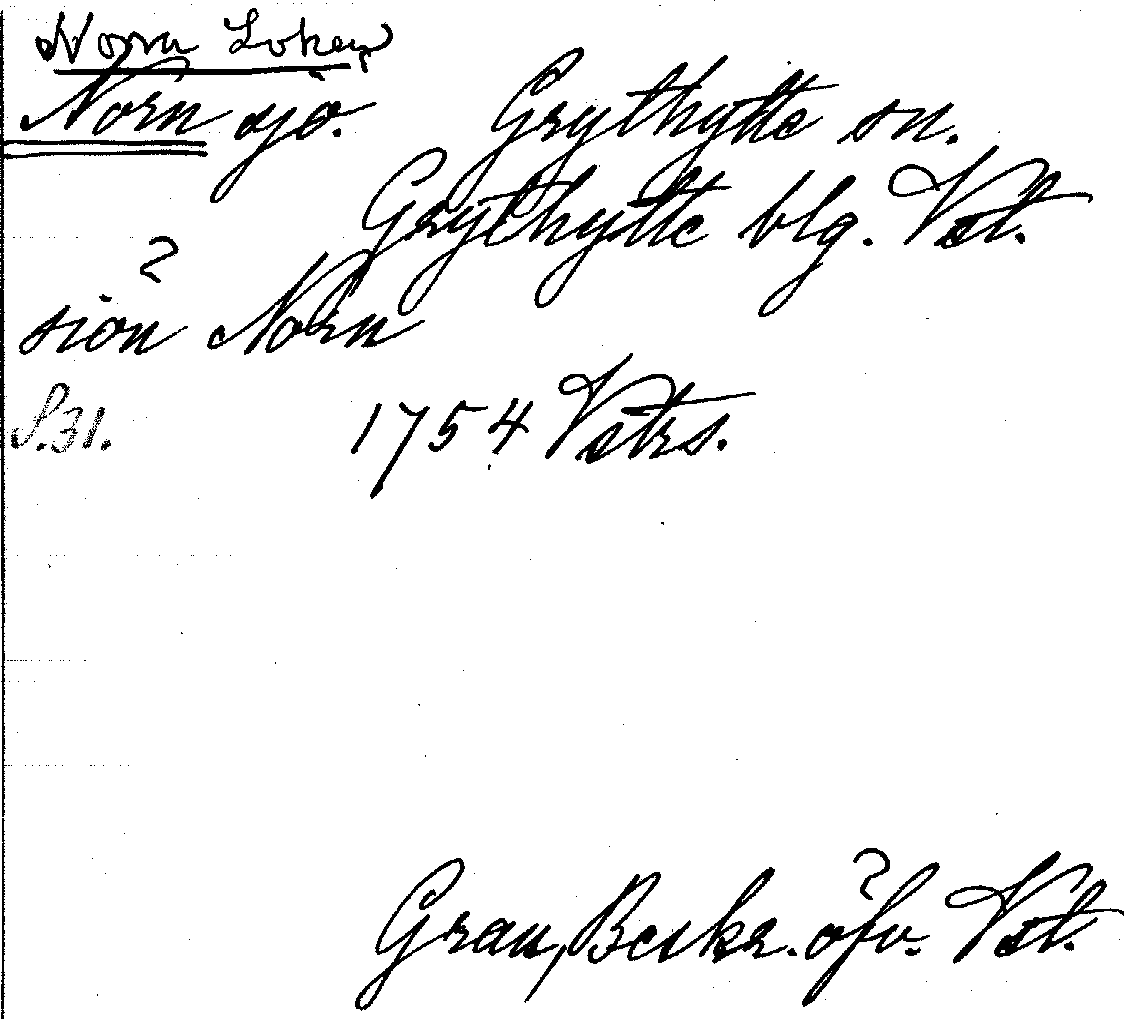 Norra Loken
Norn sjö. Grythytte sn.
Grythytte blg. Vstl.
?
siön Norn
S.31. 1754 Vstrs.
?
Grau, Beskr. öfv. Vstl.